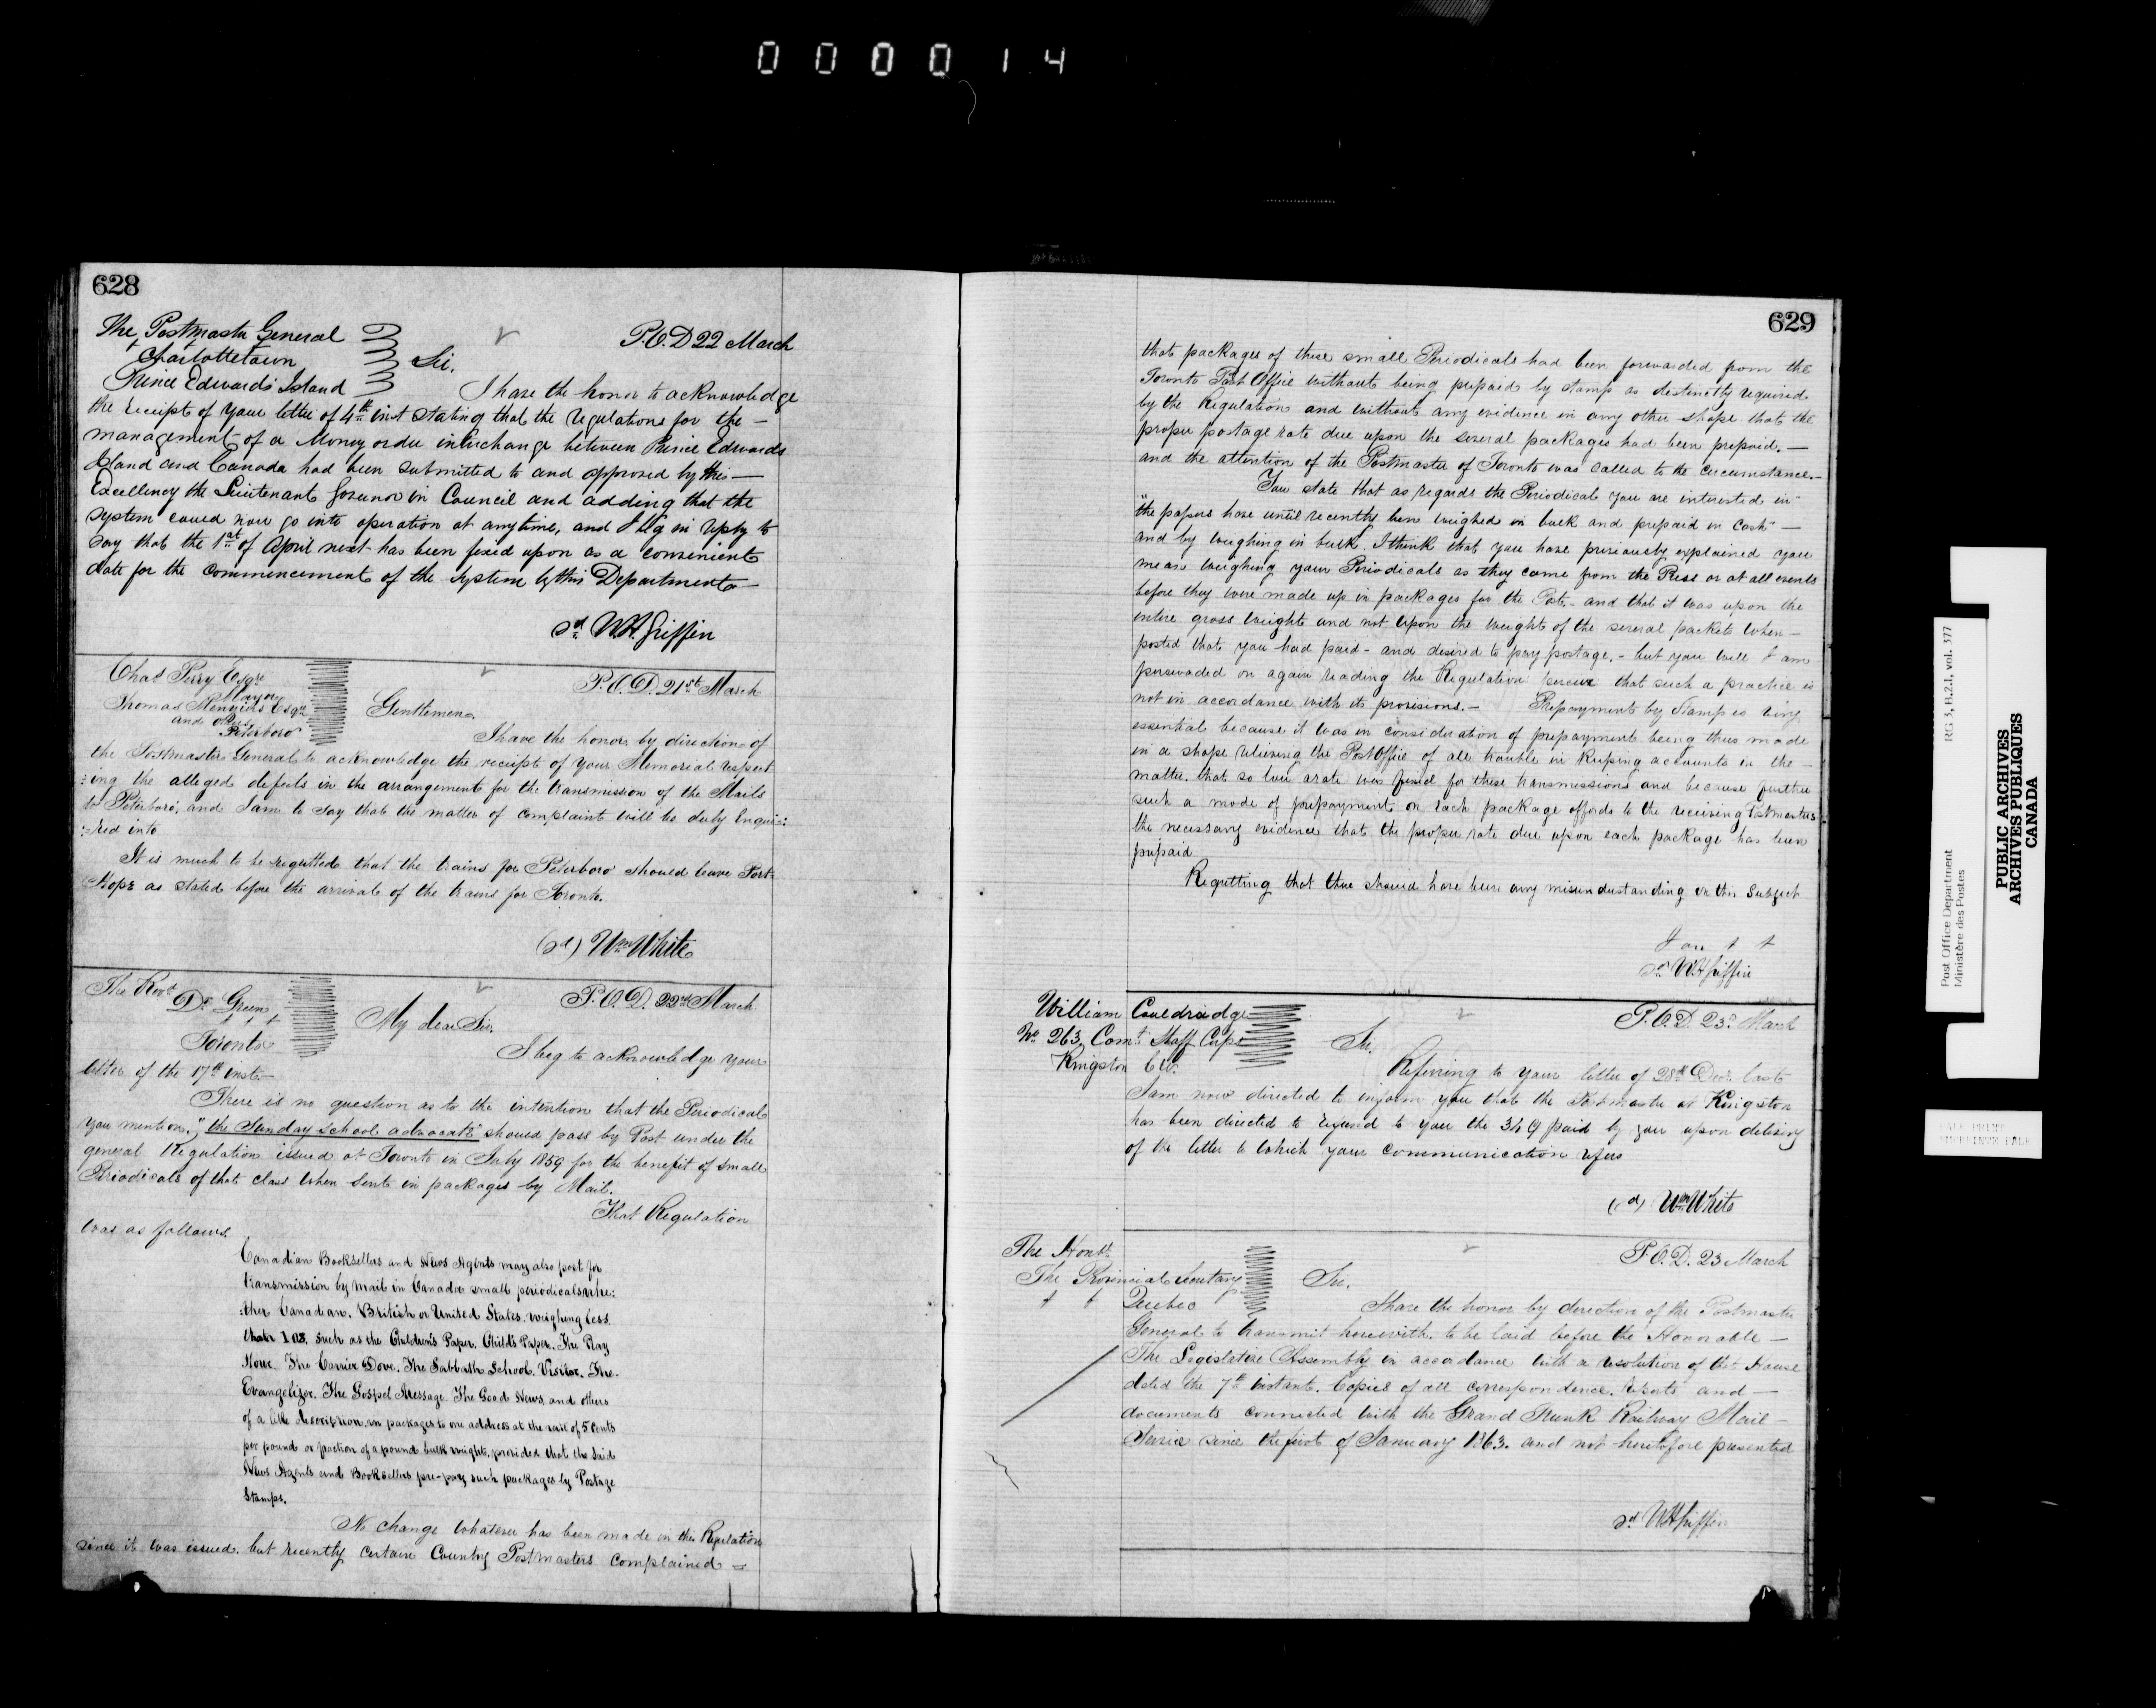 0 0 0 0 1 4
628
The Postmaster General
Charlottetown
Prince Edwards Island
P.O.D 22 March
Sir.
I have the honor to acknowledge
the receipt of your letter of 4th inst stating that the regulations for the —
management of a Money order interchange between Prince Edwards
Island and Canada had been submitted to and approved by His —
Excellency the Lieutenant Governor in Council and adding that the
system could now go into operation at any time, and I beg in reply to
say that the 1st of April next has been fixed upon as a convenient
date for the commencement of the system by this Department —
sd W.H. Griffin
Chas Perry Esqre
Mayor
Thomas Menzies Esqre
and others
Peterboro
P.O.D. 21st March
Gentlemen.
I have the honor, by direction of
the Postmaster General to acknowledge the receipt of your Memorial respect
:ing the alleged defects in the arrangement for the transmission of the Mails
to Peterboro', and I am to say that the matter of complaint will be duly Enqui:
:red into
It is much to be regretted that the trains for Peterboro should leave Port
Hope as stated before the arrival of the trains for Toronto.
(sd) Wm White
The Revd
Dr Green
Toronto
P.O.D. 22nd March
My dear Sir.
I beg to acknowledge your
letter of the 17th inst. —
There is no question as to the intention that the Periodical
you mention, "the Sunday School advocate" should pass by Post under the
general Regulation issued at Toronto in July 1859 for the benefit of small
Periodicals of that class when sent in packages by Mail.
That Regulation
was as follows.
Canadian Booksellers and News Agents may also post for
transmission by mail in Canada small periodicals whe:
:ther Canadian. British or United States. weighing less
than 1 oz. such as the Children's Paper. Child's Paper. The Day
Hour. The Carrier Dove. The Sabbath School. Visitor. The
Evangelizer. The Gospel Message. The Good News, and others
of a like description, in packages to one address at the rate of 5 cents
per pound or fraction of a pound bulk weight, provided that the said
News Agents and Booksellers pre-pay such packages by Postage
Stamps.
No change whatever has been made in this Regulation
since it was issued. but recently certain Country Postmasters complained =
629
that packages of these small Periodicals had been forwarded from the
Toronto Post Office without being prepaid by stamp as distinctly required
by the Regulation and without any evidence in any other shape that the
proper postage rate due upon the several packages had been prepaid. —
and the attention of the Postmaster of Toronto was called to the circumstance. —
You state that as regards the Periodical you are interested in
"the papers have until recently been weighed in bulk and prepaid in Cash" —
and by weighing in bulk. I think that you have previously explained you
mean weighing your Periodicals as they came from the Press or at all events
before they were made up in packages for the Post. — and that it was upon the
entire gross weight and not upon the weight of the several packets when —
posted that you had paid — and desired to pay postage. — but you will I am
persuaded on again reading the Regulation perceive that such a practice is
not in accordance with its provisions. — Prepayment by Stamp is very
essential because it was in consideration of prepayment being thus made
in a shape relieving the Post Office of all trouble in keeping accounts in the —
matter, that so low a rate was fixed for these transmissions and because further
such a mode of prepayment on each package affords to the receiving Postmasters
the necessary evidence that the proper rate due upon each package has been
prepaid
Regretting that there should have been any misunderstanding on this subject
I am
sd W H Griffin
William Couldridge
No 263, Comt Staff Corps
Kingston C W.
P.O.D. 23d March
Sir.
Referring to your letter of 28th Decr last
I am now directed to inform you that the Postmaster at Kingston
has been directed to refund to you the 3/9 paid by you upon delivery
of the letter to which your communication refers
(sd) Wm White
The Honble
The Provincial Secretary
Quebec
P.O.D. 23 March
Sir.
I have the honor by direction of the Postmaster
General to transmit herewith. to be laid before the Honorable —
The Legislative Assembly in accordance with a resolution of that House
dated the 7th instant. Copies of all correspondence. reports and —
documents connected with the Grand Trunk Railway Mail —
Service since the first of January 1863. and not heretofore presented
sd W H Griffin
Post Office Department
Ministère des Postes
RG 3, B.2.1, vol. 377
PUBLIC ARCHIVES
ARCHIVES PUBLIQUES
CANADA